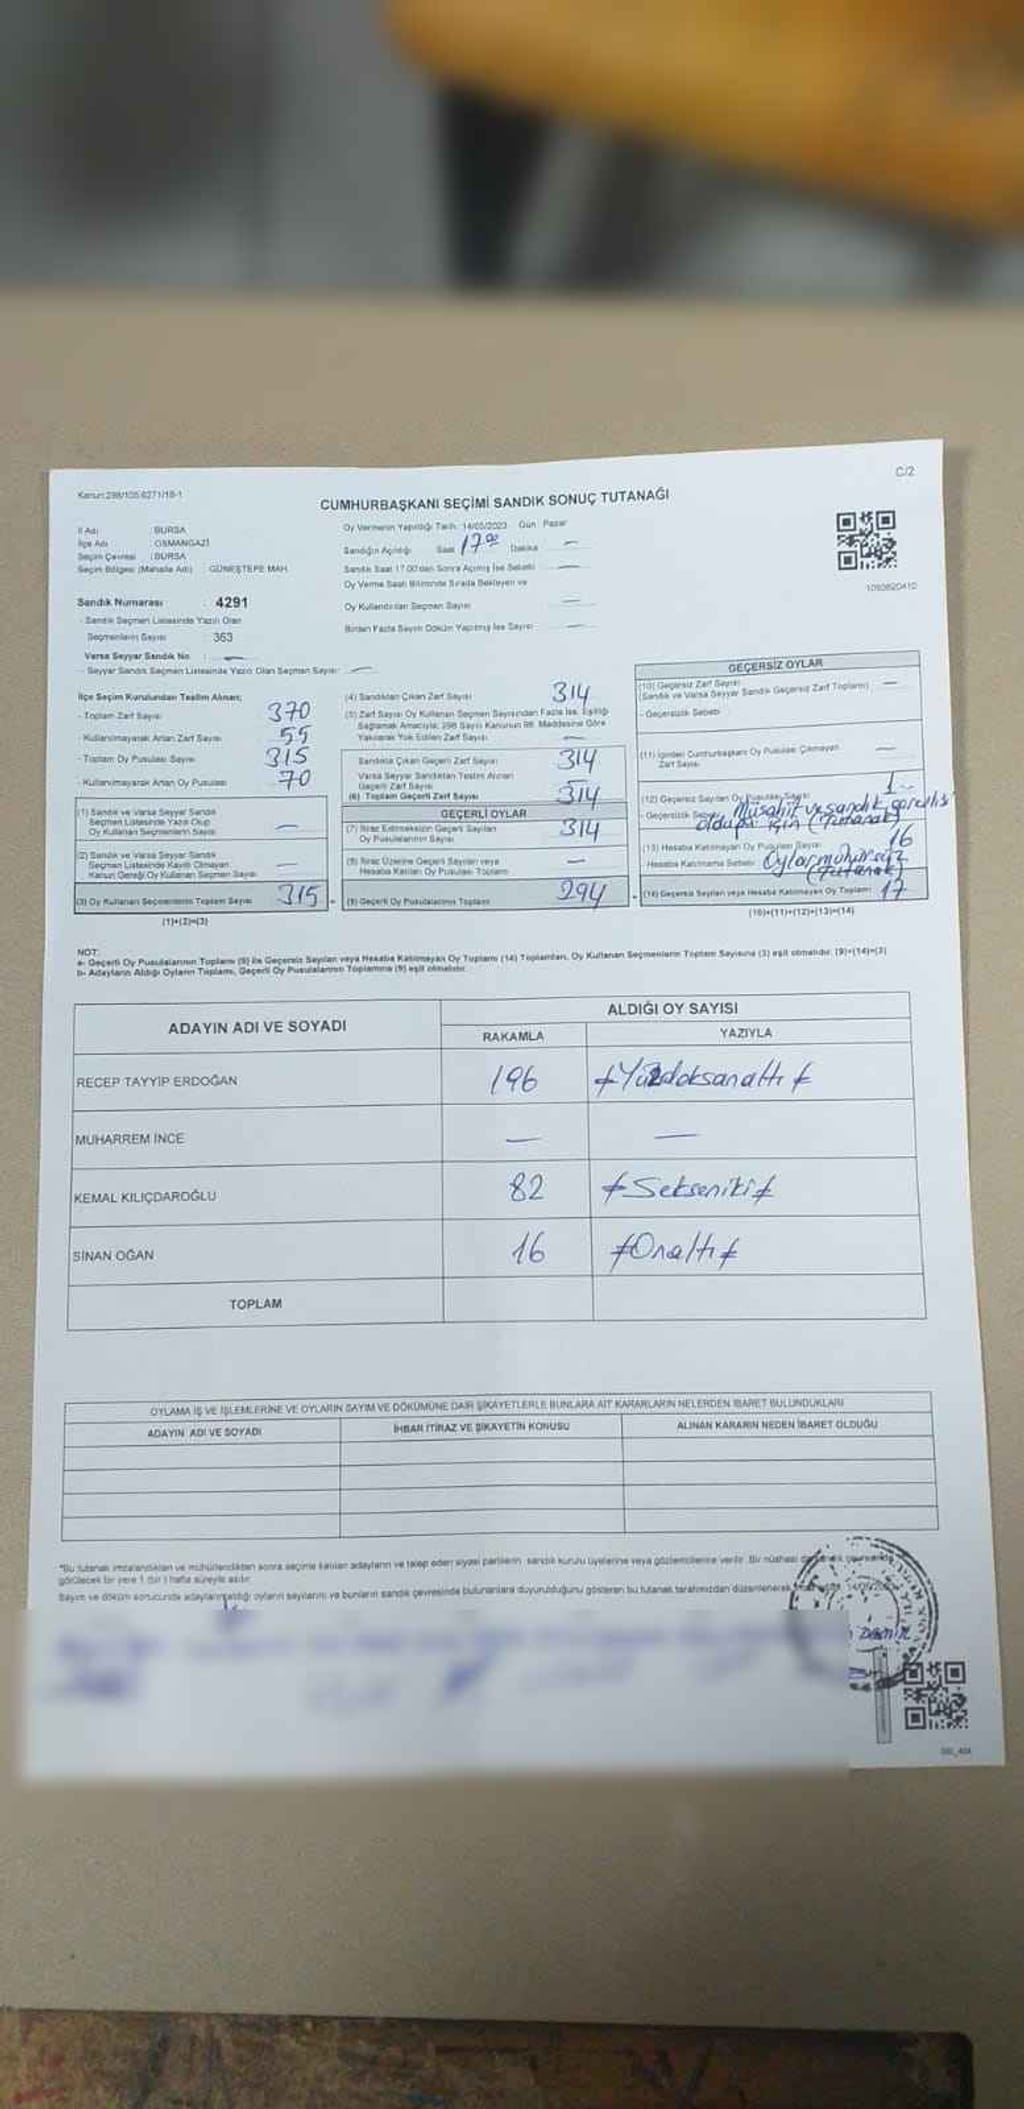 C/2
Kanun:298/105 6271/18-1
CUMHURBAŞKANI SEÇİMİ SANDIK SONUÇ TUTANAĞI
İl Adı : BURSA
İlçe Adı : OSMANGAZİ
Seçim Çevresi : BURSA
Seçim Bölgesi (Mahalle Adı) : GÜNEŞTEPE MAH.
Oy Vermenin Yapıldığı Tarih: 14/05/2023 Gün: Pazar
Sandığın Açıldığı Saat 17.00 Dakika —
Sandık Saat 17.00'dan Sonra Açılmış İse Sebebi —
Oy Verme Saati Bitiminde Sırada Bekleyen ve
Oy Kullandırılan Seçmen Sayısı —
Birden Fazla Sayım Döküm Yapılmış İse Sayısı —
1093620410
Sandık Numarası : 4291
- Sandık Seçmen Listesinde Yazılı Olan
Seçmenlerin Sayısı : 363
Varsa Seyyar Sandık No : —
- Seyyar Sandık Seçmen Listesinde Yazılı Olan Seçmen Sayısı: —
İlçe Seçim Kurulundan Teslim Alınan;
- Toplam Zarf Sayısı 370
- Kullanılmayarak Artan Zarf Sayısı 55
- Toplam Oy Pusulası Sayısı 315
- Kullanılmayarak Artan Oy Pusulası 70
(1) Sandık ve Varsa Seyyar Sandık
Seçmen Listesinde Yazılı Olup
Oy Kullanan Seçmenlerin Sayısı —
(2) Sandık ve Varsa Seyyar Sandık
Seçmen Listesinde Kayıtlı Olmayan
Kanun Gereği Oy Kullanan Seçmen Sayısı —
(3) Oy Kullanan Seçmenlerin Toplam Sayısı 315
(1)+(2)=(3)
(4) Sandıktan Çıkan Zarf Sayısı 314
(5) Zarf Sayısı Oy Kullanan Seçmen Sayısından Fazla İse, Eşitliği
Sağlamak Amacıyla; 298 Sayılı Kanunun 98. Maddesine Göre
Yakılarak Yok Edilen Zarf Sayısı —
Sandıkta Çıkan Geçerli Zarf Sayısı 314
Varsa Seyyar Sandıktan Teslim Alınan
Geçerli Zarf Sayısı —
(6) Toplam Geçerli Zarf Sayısı 314
GEÇERLİ OYLAR
(7) İtiraz Edilmeksizin Geçerli Sayılan
Oy Pusulalarının Sayısı 314
(8) İtiraz Üzerine Geçerli Sayılan veya
Hesaba Katılan Oy Pusulası Toplamı —
(9) Geçerli Oy Pusulalarının Toplamı 294
GEÇERSİZ OYLAR
(10) Geçersiz Zarf Sayısı —
(Sandık ve Varsa Seyyar Sandık Geçersiz Zarf Toplamı)
- Geçersizlik Sebebi
(11) İçinden Cumhurbaşkanı Oy Pusulası Çıkmayan —
Zarf Sayısı
(12) Geçersiz Sayılan Oy Pusulası Sayısı 1
- Geçersizlik Sebebi Müşahit ve sandık görevlisi
olduğu için (Tutanak)
(13) Hesaba Katılmayan Oy Pusulası Sayısı 16
Hesaba Katılmama Sebebi Oylar mühürsüz
(Tutanak)
(14) Geçersiz Sayılan veya Hesaba Katılmayan Oy Toplamı 17
(10)+(11)+(12)+(13)=(14)
NOT:
a- Geçerli Oy Pusulalarının Toplamı (9) ile Geçersiz Sayılan veya Hesaba Katılmayan Oy Toplamı (14) Toplamları, Oy Kullanan Seçmenlerin Toplam Sayısına (3) eşit olmalıdır. (9)+(14)=(3)
b- Adayların Aldığı Oyların Toplamı, Geçerli Oy Pusulalarının Toplamına (9) eşit olmalıdır.
ADAYIN ADI VE SOYADI
ALDIĞI OY SAYISI
RAKAMLA YAZIYLA
RECEP TAYYİP ERDOĞAN 196 #Yüzdoksanaltı#
MUHARREM İNCE — —
KEMAL KILIÇDAROĞLU 82 #Sekseniki#
SİNAN OĞAN 16 #Onaltı#
TOPLAM
OYLAMA İŞ VE İŞLEMLERİNE VE OYLARIN SAYIM VE DÖKÜMÜNE DAİR ŞİKAYETLERLE BUNLARA AİT KARARLARIN NELERDEN İBARET BULUNDUKLARI
ADAYIN ADI VE SOYADI İHBAR İTİRAZ VE ŞİKAYETİN KONUSU ALINAN KARARIN NEDEN İBARET OLDUĞU
*Bu tutanak imzalandıktan ve mühürlendikten sonra seçime katılan adayların ve talep eden siyasi partilerin sandık kurulu üyelerine veya gözlemcilerine verilir. Bir nüshası
görülecek bir yere 1 (bir) hafta süreyle asılır.
Sayım ve döküm sonucunda adayların aldığı oyların sayılarını ve bunların sandık çevresinde bulunanlara duyurulduğunu gösteren bu tutanak tarafımızdan düzenlenerek